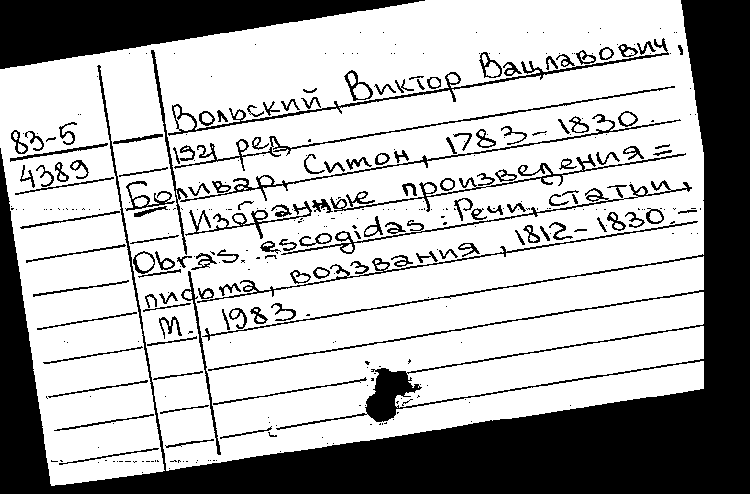 83-5
4389
Вольский, Виктор Вацлавович,
1921 ред.
Боливар, Симон, 1783-1830.
Избранные произведения =
Obras escogidas : Речи, статьи,
письма, воззвания, 1812-1830. -
М., 1983.